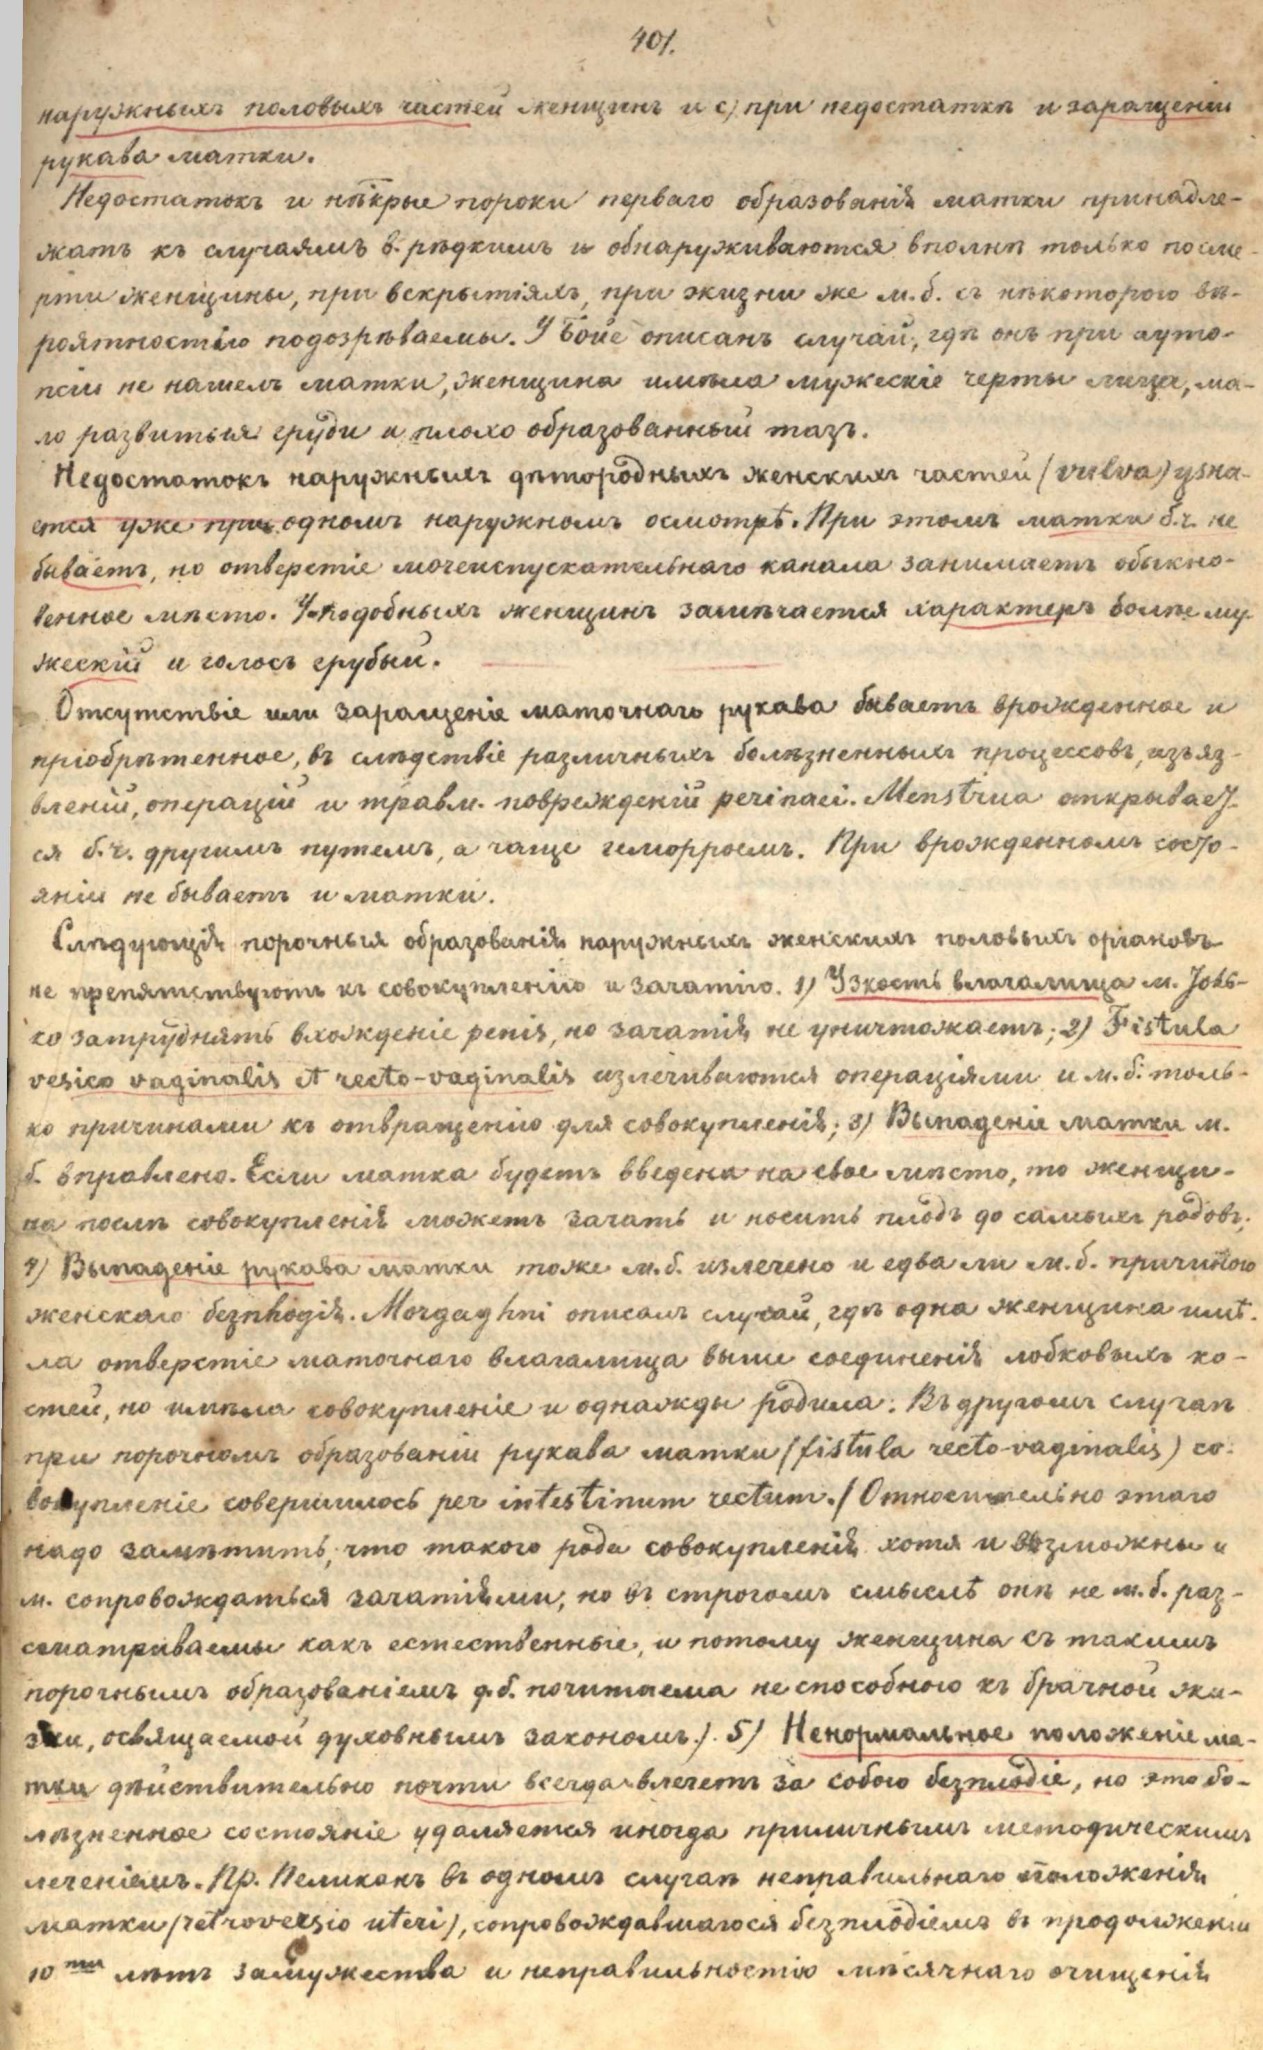 401.
наружныхъ половыхъ частей женщинъ и с) при недостаткѣ и заращеніи
рукава матки.
Недостатокъ и нѣкрые пороки перваго образованія матки принадле-
жатъ къ случаямъ в. рѣдкимъ и обнаруживаются вполнѣ только посме-
рти женщины, при вскрытіяхъ, при жизни же м. б. съ нѣкоторою вѣ-
роятностію подозрѣваемы. У Бойе описанъ случай, гдѣ онъ при ауто-
псіи не нашелъ матки, женщина имѣла мужескіе черты лица, ма-
ло развитыя груди и плохо образованный тазъ.
Недостатокъ наружныхъ дѣтородныхъ женскихъ частей (vulva) узна-
ется уже при одномъ наружномъ осмотрѣ. При этомъ матки б. ч. не
бываетъ, но отверстіе мочеиспускательнаго канала занимаетъ обыкно-
венное мѣсто. У подобныхъ женщинъ замѣчается характеръ болѣе му-
жескій и голосъ грубый.
Отсутствіе или заращеніе маточнаго рукава бываетъ врожденное и
пріобрѣтенное, въ слѣдствіе различныхъ болѣзненныхъ процессовъ, изъяз-
вленій, операцій и травм. поврежденій perinaei. Menstrua открывает-
ся б. ч. другимъ путемъ, а чаще геморроемъ. При врожденномъ состо-
яніи не бываетъ и матки.
Слѣдующія порочныя образованія наружныхъ женскихъ половыхъ органовъ
не препятствуютъ къ совокупленію и зачатію. 1) Узкость влагалища м. толь-
ко затруднять вхожденіе penis, но зачатія не уничтожаетъ; 2) Fistula
vesico vaginalis et recto-vaginalis излечиваются операціями и м. б. толь-
ко причинами къ отвращенію для совокупленія; 3) Выпаденіе матки м.
б. вправлено. Если матка будетъ введена на свое мѣсто, то женщи-
на послѣ совокупленія можетъ зачать и носить плодъ до самыхъ родовъ;
4) Выпаденіе рукава матки тоже м. б. излечено и едва ли м. б. причиною
женскаго безплодія. Morgaghni описалъ случай, гдѣ одна женщина имѣ-
ла отверстіе маточнаго влагалища выше соединенія лобковыхъ ко-
стей, но имѣла совокупленіе и однажды родила. Въ другомъ случаѣ
при порочномъ образованіи рукава матки (fistula recto-vaginalis) со-
вокупленіе совершилось per intestinum rectum. (Относительно этаго
надо замѣтить, что такого рода совокупленія хотя и возможны и
м. сопровождаться зачатіями, но въ строгомъ смыслѣ онѣ не м. б. раз-
сматриваемы какъ естественные, и потому женщина съ такимъ
порочнымъ образованіемъ д. б. почитаема неспособною къ брачной жи-
зни, освящаемой духовнымъ закономъ.). 5) Ненормальное положеніе ма-
тки дѣйствительно почти всегда влечетъ за собою безплодіе, но это бо-
лѣзненное состояніе удаляется иногда приличнымъ методическимъ
леченіемъ. Пр. Пеликанъ въ одномъ случаѣ неправильнаго положенія
матки (retroversio uteri), сопровождавшагося безплодіемъ въ продолженіи
10ти лѣтъ замужества и неправильностію мѣсячнаго очищенія